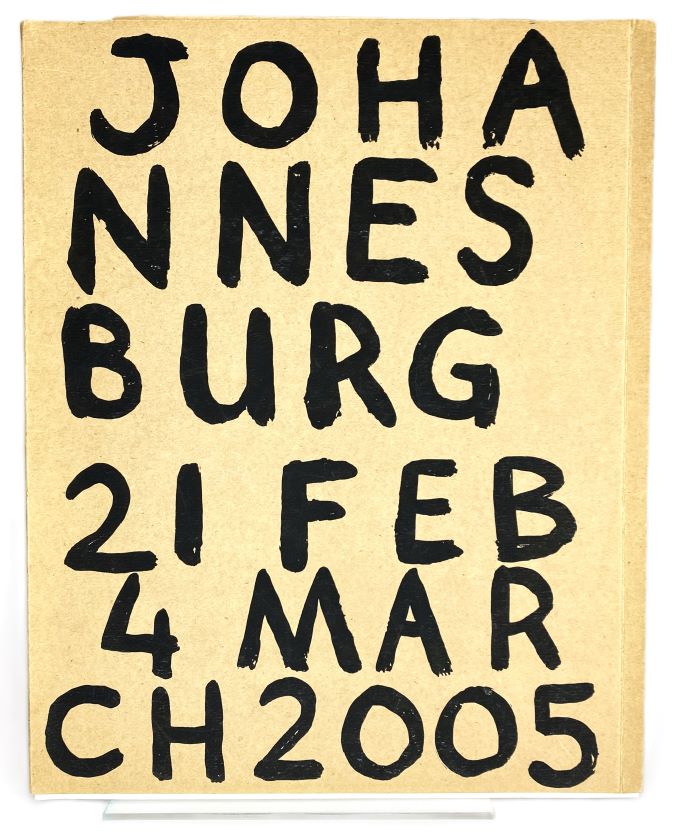 JOHA
NNES
BURG
21 FEB
4 MAR
CH2005